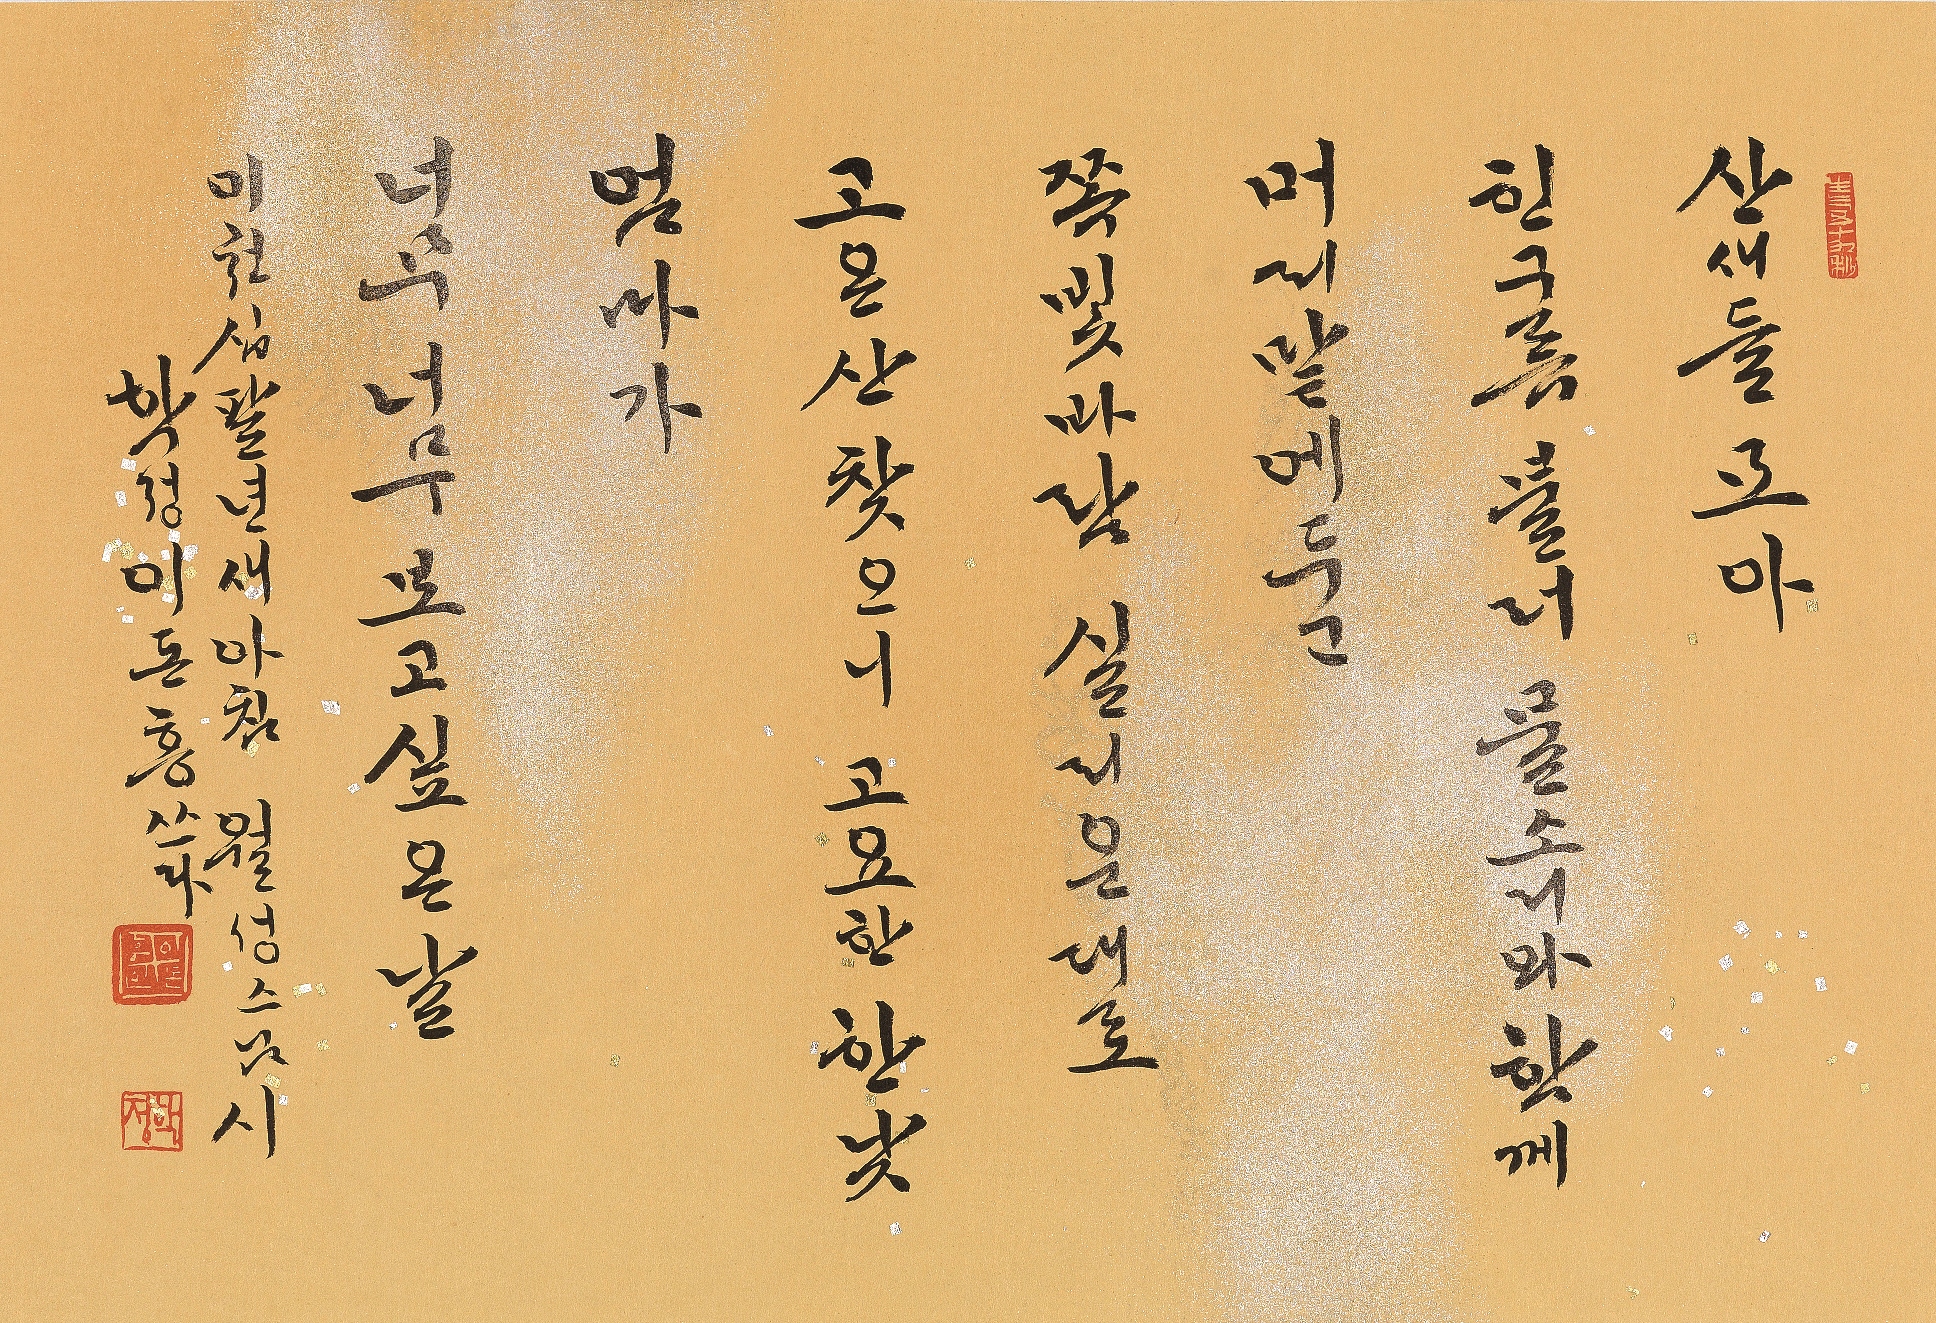 산새들 모아
힌구름 불러 물소리와 함께
머리맡에 두고
쪽빛 바람 실리운대로
고은 산 찾으니 고요한 한낮
엄마가
너무 너무 보고싶은 날
이천십팔년 새아침 월성스님 시
학정 이돈흥 쓰다
학정